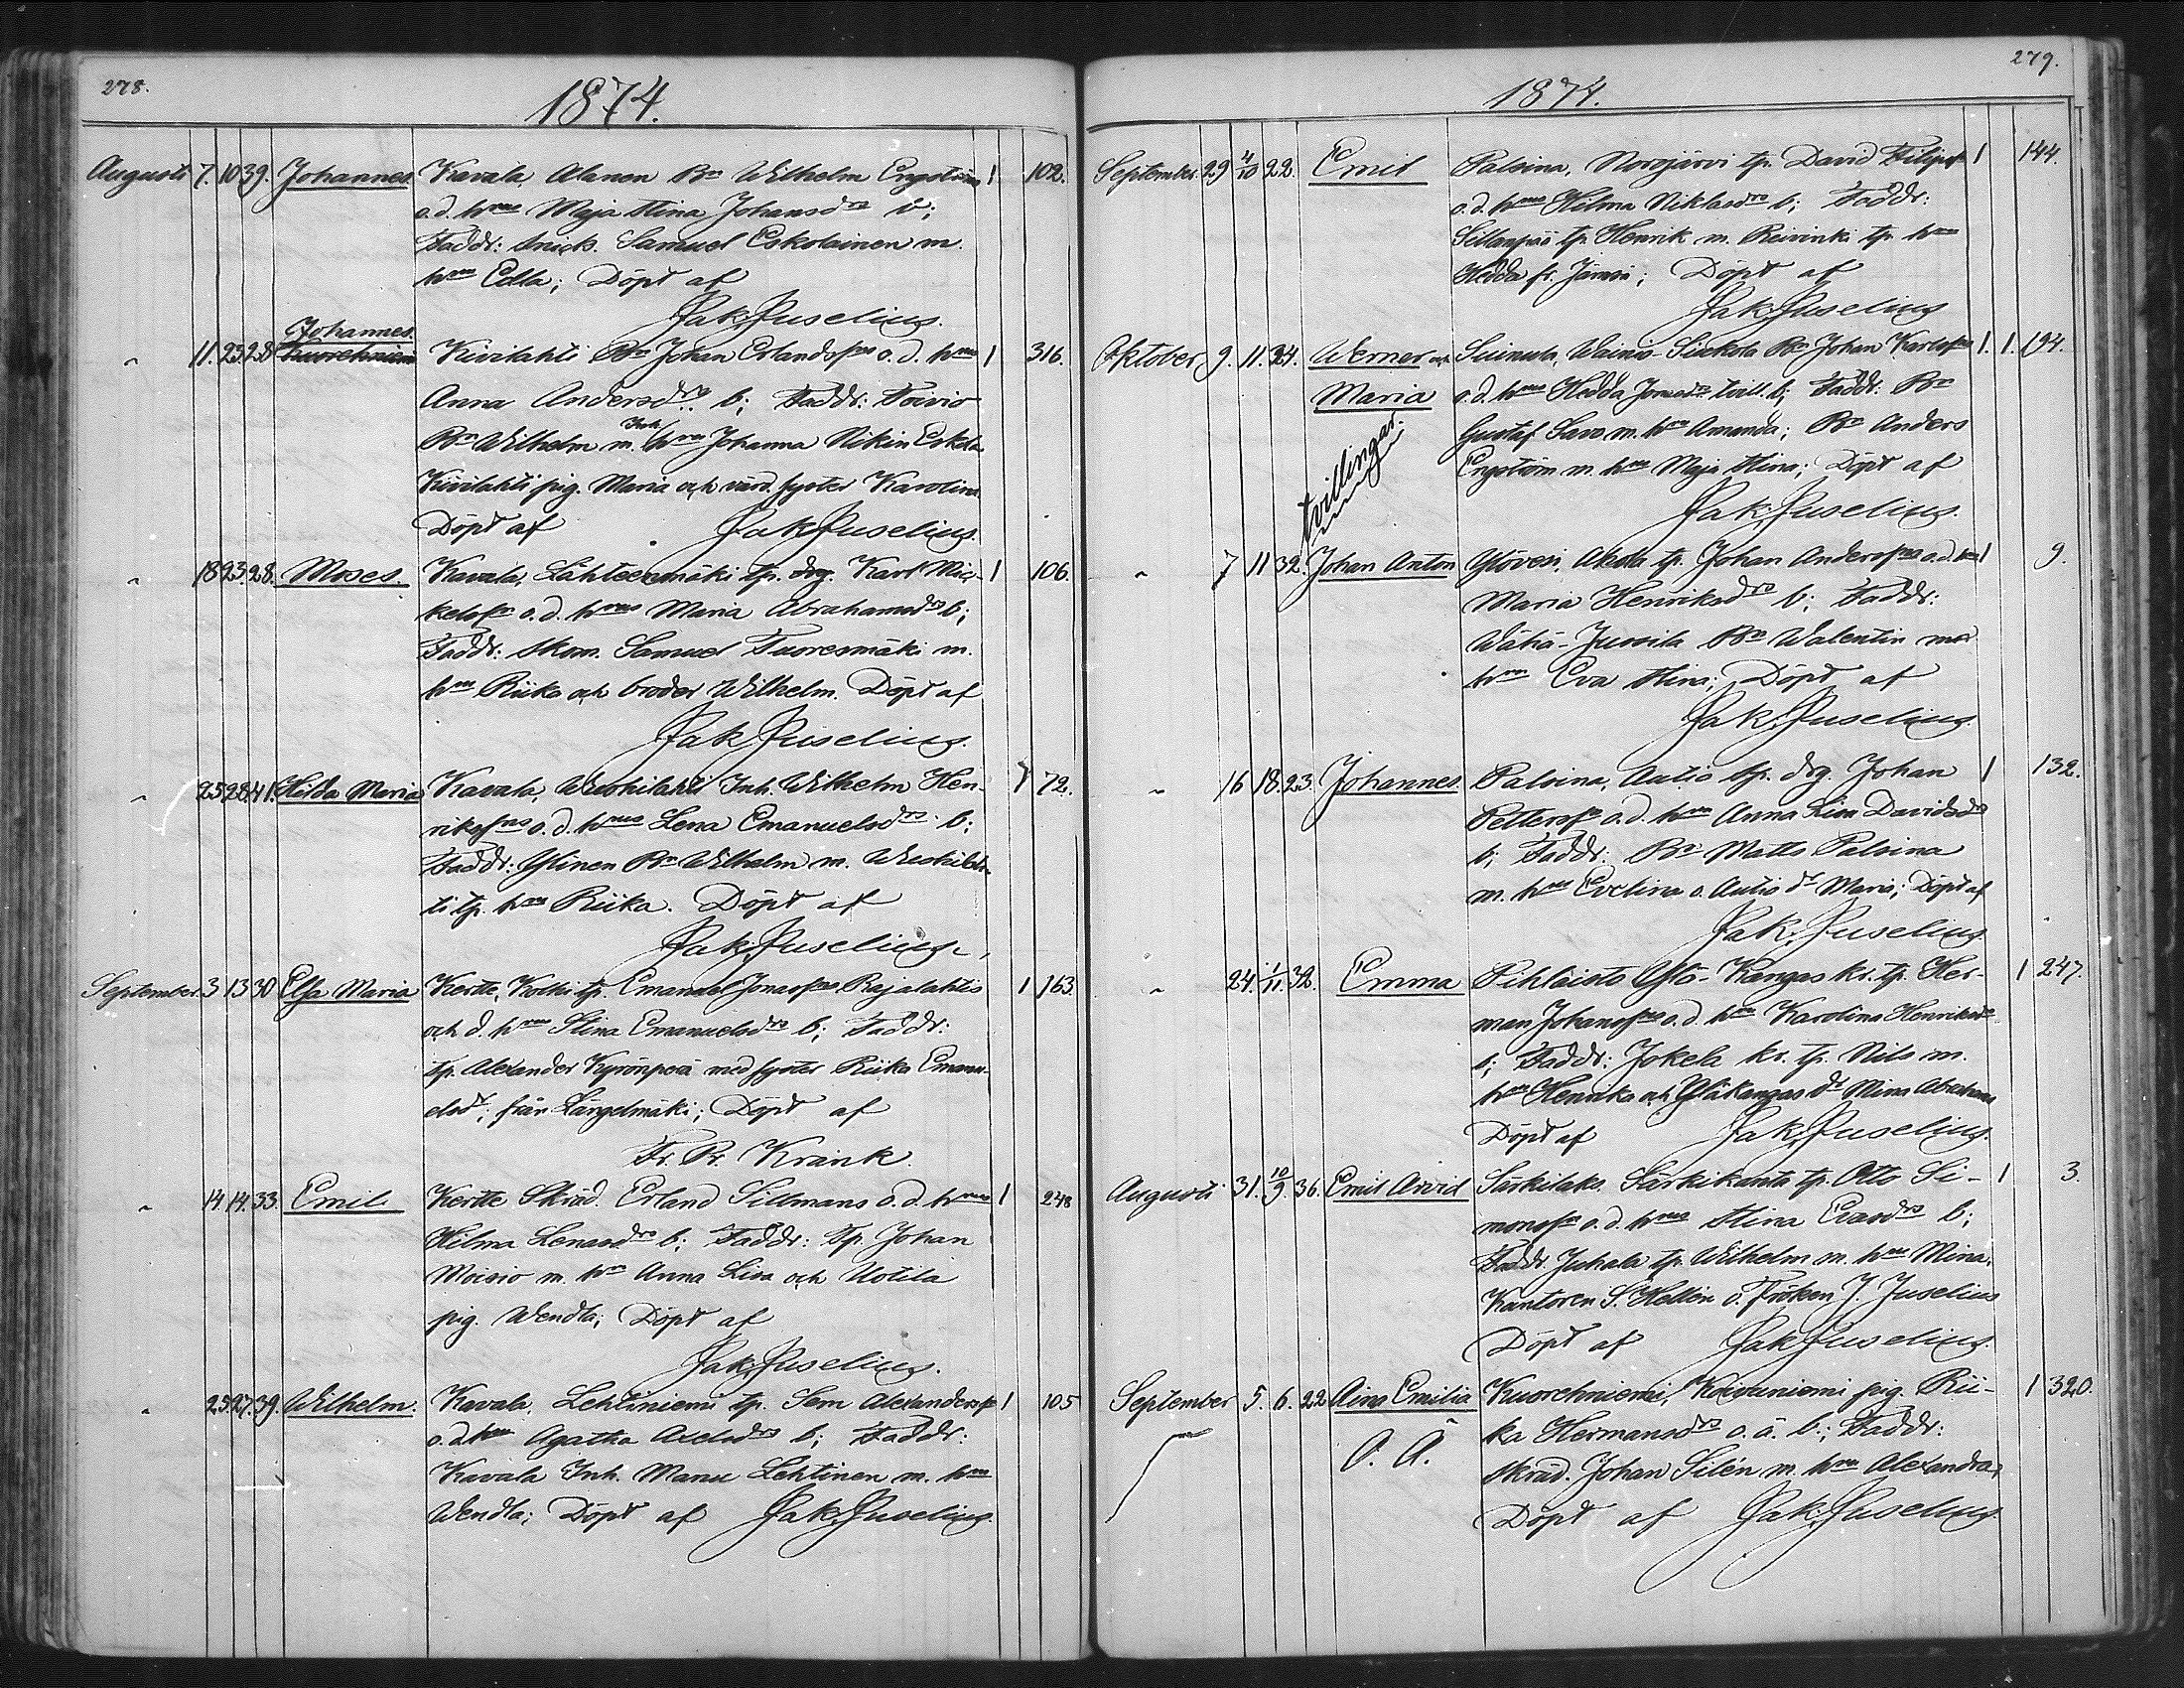 278.
1874.
Augusti 7. 10 39. Johannes. Kavala, Alanen Bn Wilhelm Engström 1 102.
o.d. hrus Maja Stina Johansdrs b;
Faddr: snick. Samuel Eskolainen m.
hru Edla; Döpt af
Jak. Juselius.
Johannes.
" 11. 23 28 Kuorehniemi Kivilahti Bn Johan Erlandsfns o. d. hrus 1 316.
Anna Andersdrs b; Faddr: Toivio
Bn Wilhelm m. Inh. hru Johanna Nikin Eskola
Kivilahti pig. Maria och värd. syster Karolina
Döpt af Jak Juselius.
" 18 23 28. Moses. Kavala, Lähteenmäki tp. drg. Karl Mic- 1 106.
kelsfn o.d. hrus Maria Abrahamsdrs b;
Faddr: Skom. Samuel Tuoresmäki m.
hru Riika och broder Wilhelm. Döpt af
Jak Juselius.
" 25 28 41. Hilda Maria Kavala, Wuohilahti Inh. Wilhelm Hen- 1 72.
riksfns o.d. hrus Lena Emanuelsdrs b;
Faddr: Ylinen Bn Wilhelm m. Wuohilah-
ti tp. hru Riika. Döpt af
Jak. Juselius,
September 3 13 30 Elsa Maria Kertte, Kolki tp. Emanuel Jonasfns Rajalahtis 1 163.
och d. hrus Stina Emanuelsdrs b; Faddr:
tp. Alexander Kyrönperä med syster Riika Emanu-
elsdr; från Längelmäki; Döpt af
Fr. Br. Krank.
" 14. 14. 33. Emil. Kertte Skräd. Erland Sillmans o.d. hrus 1 248
Hilma Lenasdrs b; Faddr: Tp. Johan
Moisio m. hru Anna Lisa och Uotila
pig. Wendla; Döpt af
Jak. Juselius.
" 25 27. 39. Wilhelm. Kavala, Lehtiniemi tp. Sem Alexandersfs 1 105
o.d. hru Agatha Axelsdrs b; Faddr:
Kavala Inh. Manu Lehtinen m. hru
Wendla; Döpt af Jak. Juselius.
279.
1874.
September. 29 4/10 22. Emil Palsina, Norojärvi tp. David Filipsfs 1 144.
o.d. hrus Hilma Niklasdrs b; Faddr:
Sillanpää tp. Henrik m. Reivinki tp. hru
Hedda fr. Jämsä; Döpt af
Jak. Juselius
Oktober 9. 11. 34. Werner och Suinula, Wainio-Siukola Bn Johan Karlsfns 1. 1. 194.
Maria o.d. hrus Hedda Jonasdrs tvill. b; Faddr: Bn
tvillingar. Gustaf Savo m. hru Amanda; Bn Anders
Engström m. hru Maja Stina; Döpt af
Jak. Juselius.
" 7 11 32. Johan Anton Ylövesi, Akola tp. Johan Andersfns o.d. hrus 1 9.
Maria Henriksdrs b; Faddr:
Wähä-Jussila Bn Walentin med
hru Eva Stina; Döpt af
Jak. Juselius.
" 16 18. 23. Johannes. Palsina, Autio tp. drg. Johan 1 132.
Pettersfs o.d. hru Anna Lisa Davidsdrs
b; Faddr: Bn Matts Palsina
m. hru Evelina o. Autio dr Maria; Döpt af
Jak. Juselius.
" 24. 1/11. 32. Emma Pihlaisto Yls-Kangas kr. tp. Her- 1 247.
man Johansfns o.d. hru Karolina Henriksdrs
b; Faddr: Jokela kr. tp. Nils m.
hru Henrika och Yläkangas dr Mina Abrahams
Döpt af Jak. Juselius.
Augusti 31. 10/9 36. Emil Arvid Särkilaks. Särkikanta tp. Otto Si- 1 3.
monsfns o.d. hrus Stina Evasdrs b;
Faddr. Juhala tp. Wilhelm m. hru Mina,
Kantoren S. Hellén o. Fröken J. Juselius
Döpt af Jak Juselius.
September 5. 6. 22 Aina Emilia Kuorehniemi, Koivuniemi pig. Rii- 1 320.
O. Ä. ka Hermansdrs o. ä. b.; Faddr:
Skräd. Johan Silén m. hru Alexandra,
Döpt af Jak. Juselius.